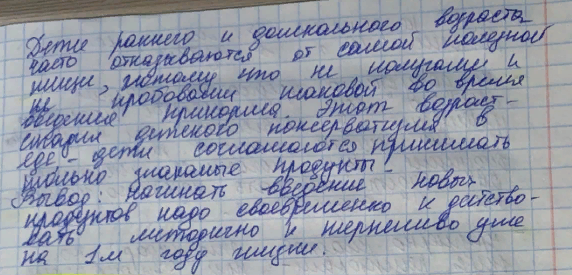 Дети раннего и дошкольного возраста
часто отказываются от самой полезной
пищи, потому что не получали и
не пробовали таковой во время
введения прикорма. Этот возраст -
стадия детского консерватизма в
еде - дети соглашаются принимать
только знакомые продукты.
Вывод: начинать введение новых
продуктов надо своевременно и действо-
вать методично и терпеливо уже
на 1м году жизни.